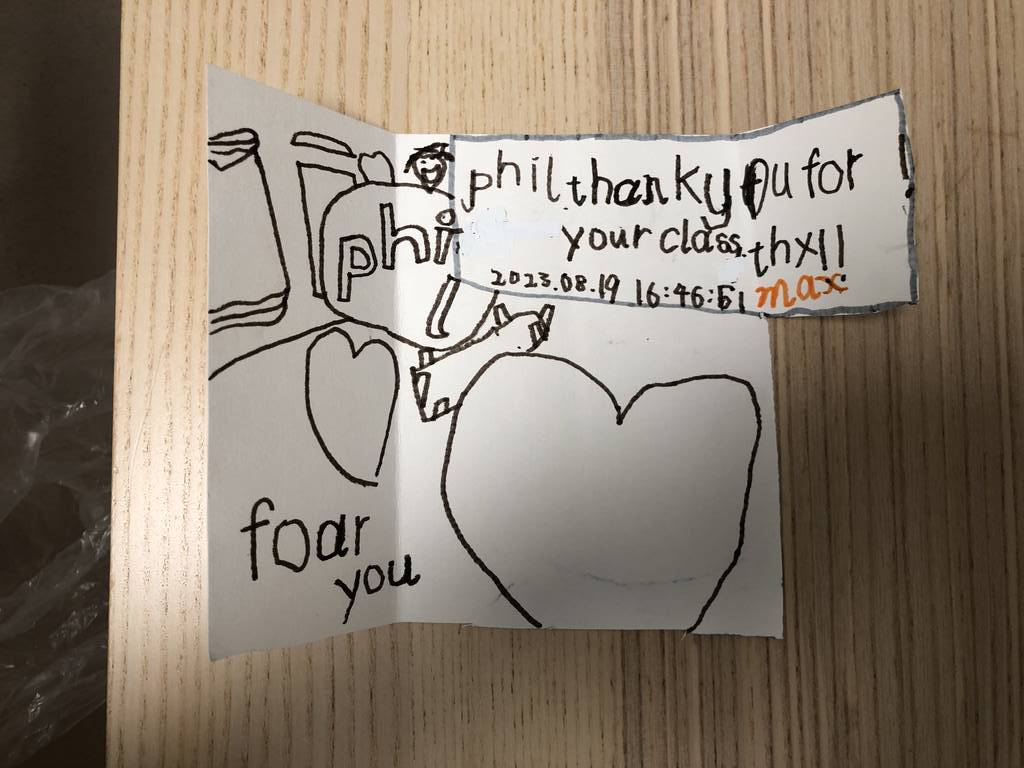 phil thank you for
your class. thx!!
2023.08.19 16:46:51 max
phi
l
foar
you